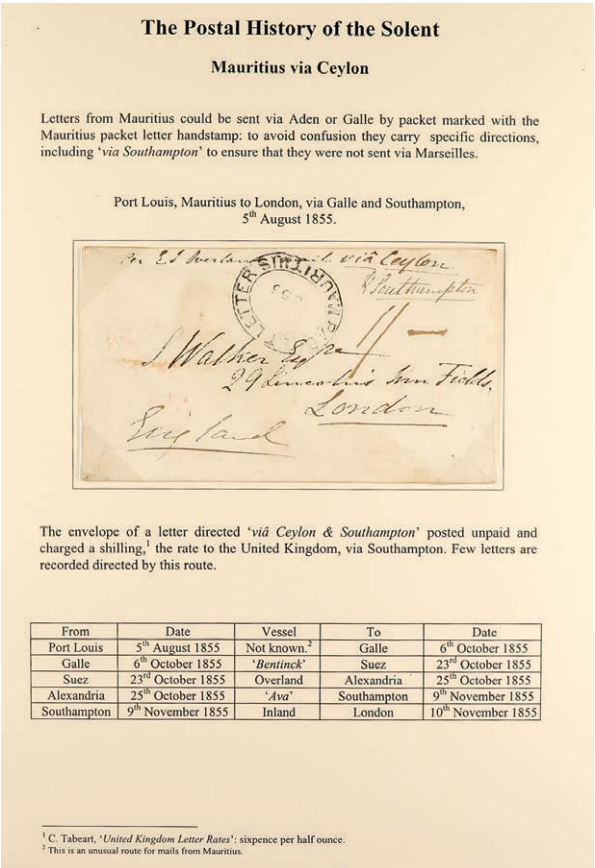 The Postal History of the Solent
Mauritius via Ceylon
Letters from Mauritius could be sent via Aden or Galle by packet marked with the
Mauritius packet letter handstamp: to avoid confusion they carry specific directions,
including ‘via Southampton’ to ensure that they were not sent via Marseilles.
Port Louis, Mauritius to London, via Galle and Southampton,
5th August 1855.
Per Overland viâ Ceylon
& Southampton
MAURITIUS PACKET LETTER
J Walker Esqre
29 Lincoln's Inn Fields.
London
England
The envelope of a letter directed ‘viâ Ceylon & Southampton’ posted unpaid and
charged a shilling,1 the rate to the United Kingdom, via Southampton. Few letters are
recorded directed by this route.
From Date Vessel To Date
Port Louis 5th August 1855 Not known.2 Galle 6th October 1855
Galle 6th October 1855 ‘Bentinck’ Suez 23rd October 1855
Suez 23rd October 1855 Overland Alexandria 25th October 1855
Alexandria 25th October 1855 ‘Ava’ Southampton 9th November 1855
Southampton 9th November 1855 Inland London 10th November 1855
1 C. Tabeart, ‘United Kingdom Letter Rates’: sixpence per half ounce.
2 This is an unusual route for mails from Mauritius.